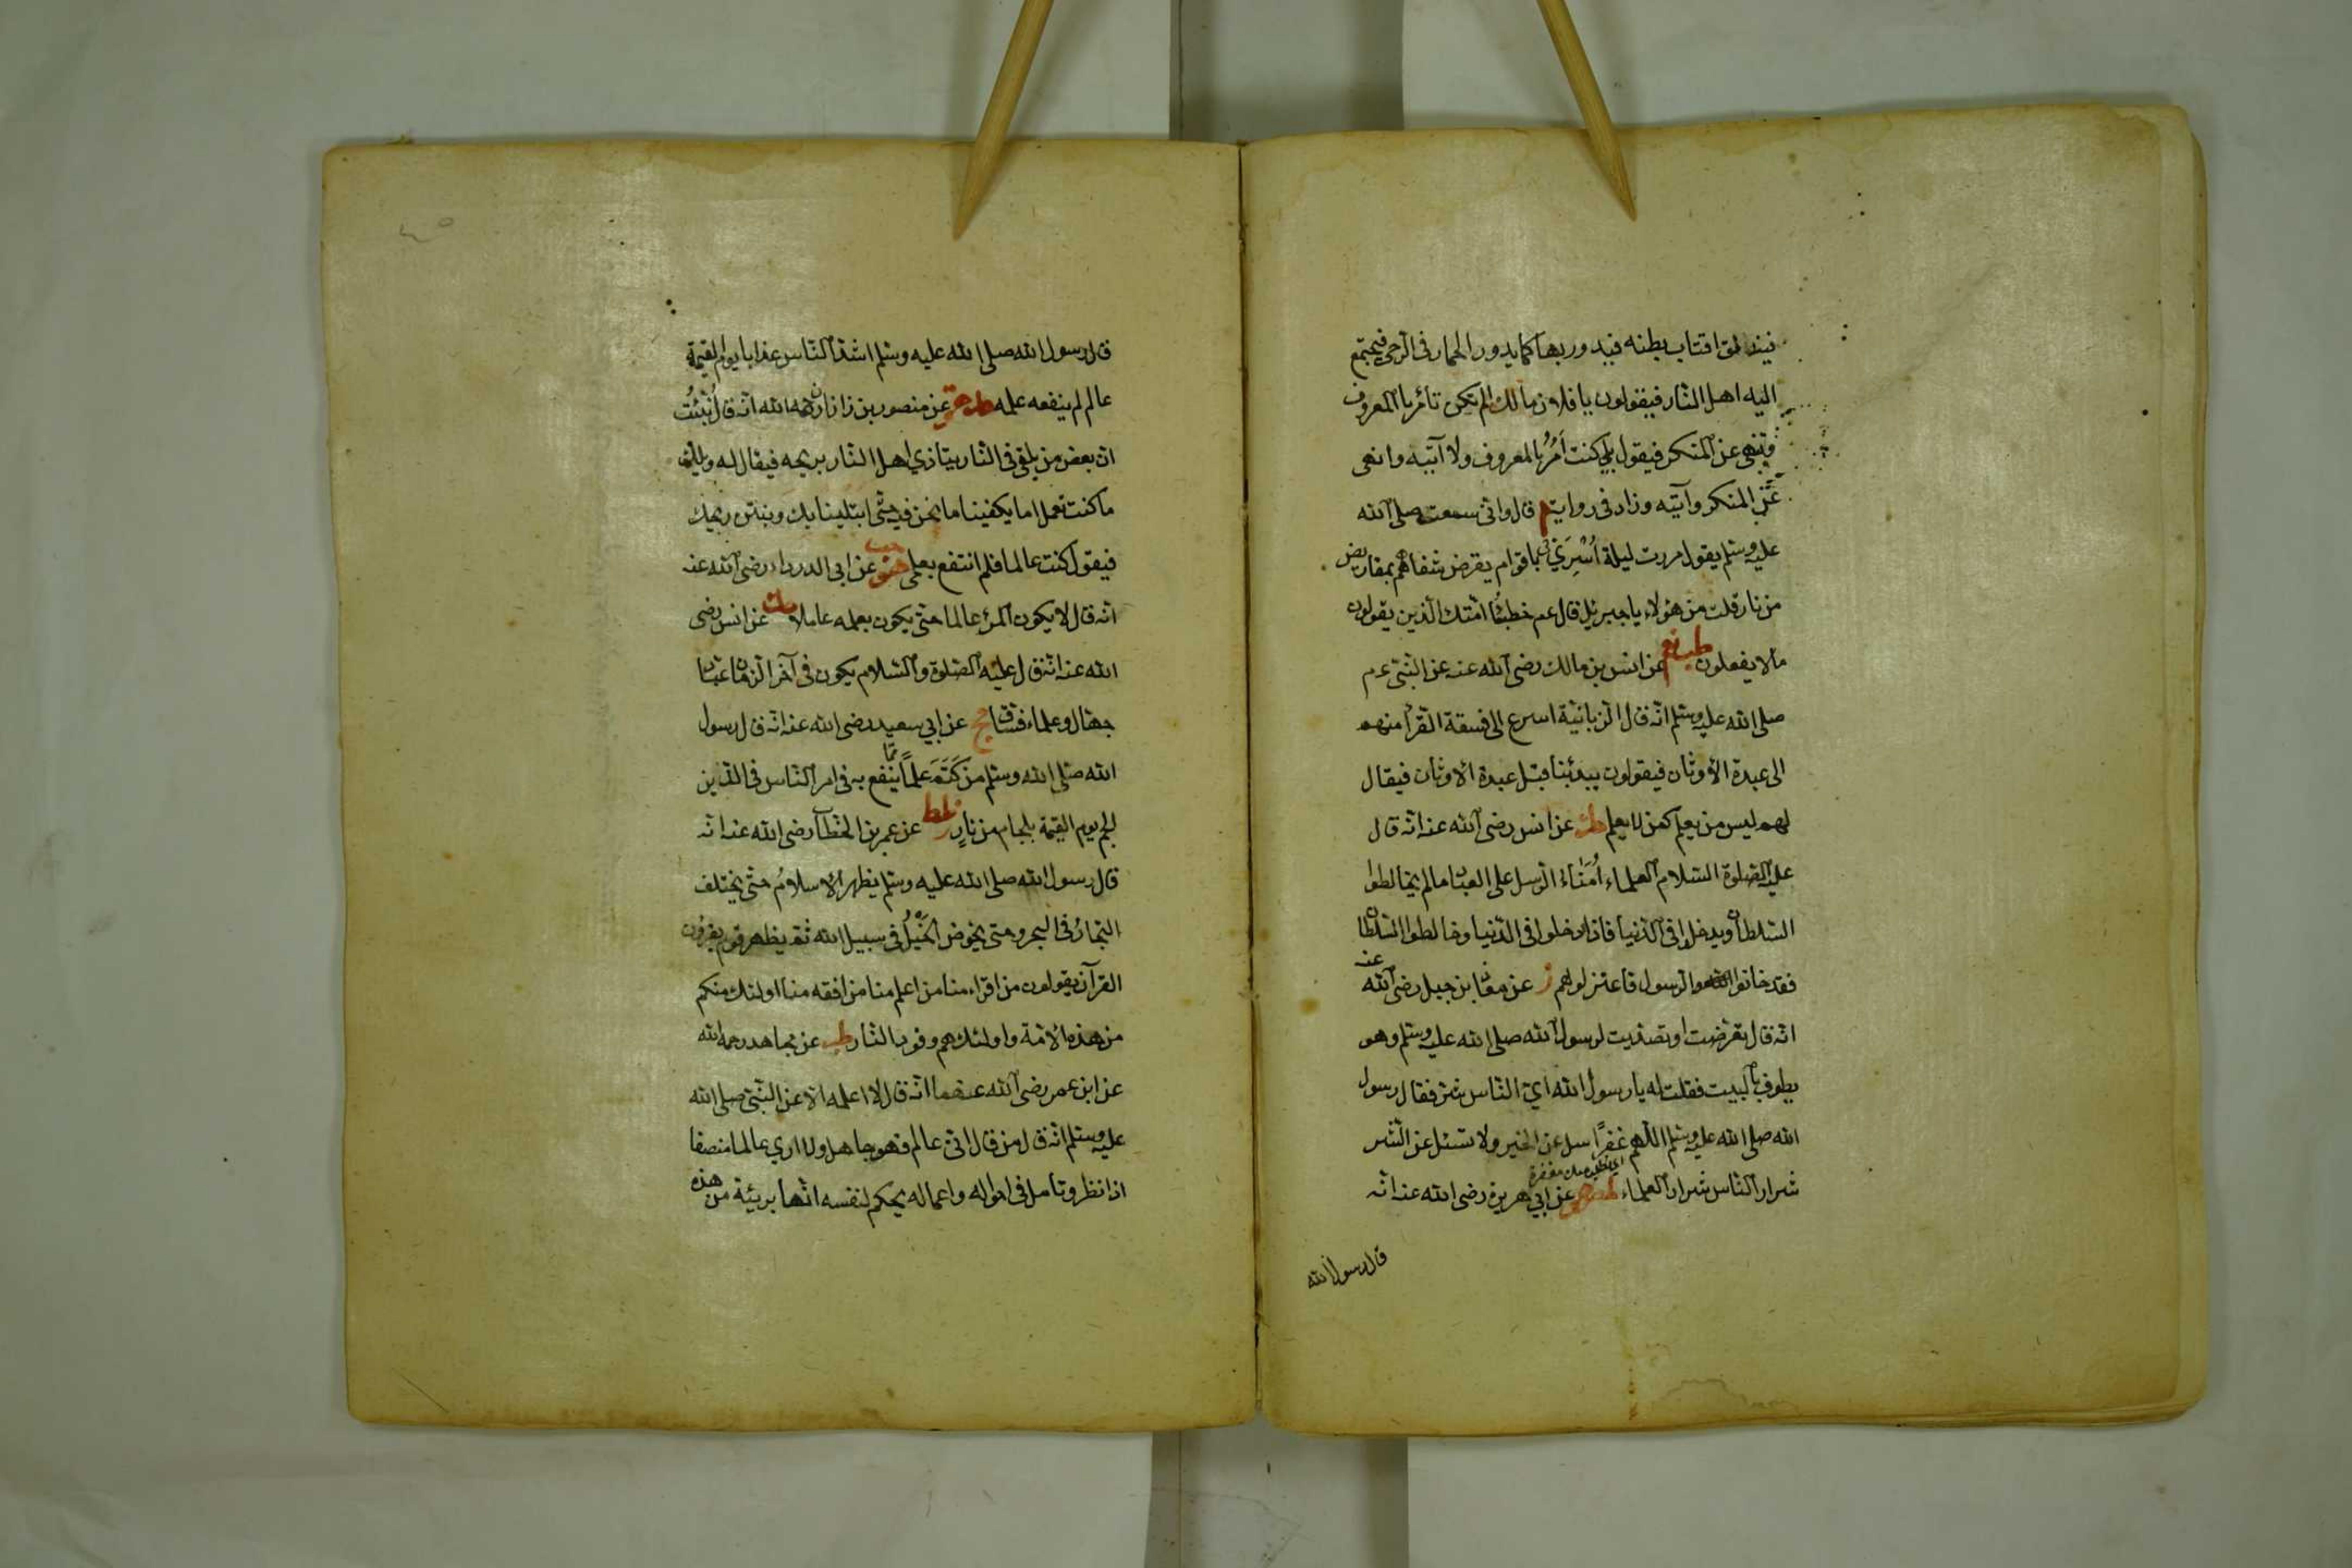 فتندلق اقتاب بطنه فيدور بها كما يدور الحمار في الرحى فيجتمع
اليه اهل النار فيقولون يا فلان مالك الم تكن تأمر بالمعروف
وتنهى عن المنكر فيقول بلى كنت آمُرُ بالمعروف ولا آتيه وانهى
عَنِ المنكر وآتيه وزاد في رواية م قال واني سمعت صلى الله
عليه وسلم يقول مررت ليلة اُسْرِيَ بي باقوام يقرض شفاههم بمقاريض
من نار قلت من هؤلاء يا جبريل قال عم خطباء امتك الذين يقولون
مالا يفعلون طب نع عن انس بن مالك رضى الله عنه عن النبى عم
صلى الله عليه وسلم انه قال الزبانية اسرع الى فسقة القرأ منهم
الى عبدة الاوثان فيقولون يبدئبنا قبل عبدة الاوثان فيقال
لهم ليس من يعلم كمن لا يعلم عن انس رضى الله عنه انه قال
عليه الصلوة السلام العلماء اُمَنَاءُ الرسل على العباد مالم يخالطوا
السلطان ويدخلوا فى الدنيا فاذا دخلوا فى الدنيا وخالطوا السلطان
فقد خانوا الرسول فاعتزلوهم ز عن معاذ بن جبل رضى الله عنه
انه قال تعرضت او تصديت لرسول الله صلى الله عليه وسلم وهو
يطوف بالبيت فقلت له يا رسول الله اي الناس شر فقال رسول
الله صلى الله عليه وسلم اللهم غفرًا سل عن الخير ولا تسئل عن الشر
شرار الناس شرار العلماء عن ابي هريرة رضى الله عنه انه
قال رسول الله
قال رسول الله صلى الله عليه وسلم اشد الناس عذابا يوم القيمة
عالم لم ينفعه علمه عن منصور بن زاذان رحمه الله انه قال نُبِّئْتُ
ان بعض من يلقى فى النار يتاذي اهل النار بريحه فيقال له ويلك
ما كنت تعمل اما يكفينا ما نحن فيه حتى ابتلينا بك وبنتن ريحك
فيقول كنت عالما فلم انتفع بعلمى عن ابى الدرداء رضى الله عنه
انه قال لا يكون المرء عالما حتى يكون بعلمه عاملا عن انس رضى
الله عنه انه قال عليه الصلوة والسلام يكون فى آخر الزمان عباد
جهال وعلماء فساق مج عن ابي سعيد رضى الله عنه انه قال رسول
الله صلى الله وسلم من كَتَمَ علمًا مما ينفع به فى امر الناس فى الدين
الجم يوم القيمة بلجام من نارٍ طط عن عمر بن الخطاب رضى الله عنه انه
قال رسول الله صلى الله عليه وسلم يظهر الاسلامُ حتى يختلف
التجارُ فى البحر وحتى يخوض الخَيْلُ فى سبيل الله ثم يظهر قوم يقرؤن
القرآن يقولون من اقراء منا من اعلم منا من افقه منا اولئك منكم
من هذه الامة واولئك هم وقود النار طب عن مجاهد رحمه الله
عن ابن عمر رضى الله عنهما انه قال لا اعلمه الا عن النبى صلى الله
عليه وسلم انه قال من قال انى عالم فهو جاهل ولا اري عالما منصفا
اذا نظر وتامل فى احواله واعماله يحكم لنفسه انها بريئة من هذه